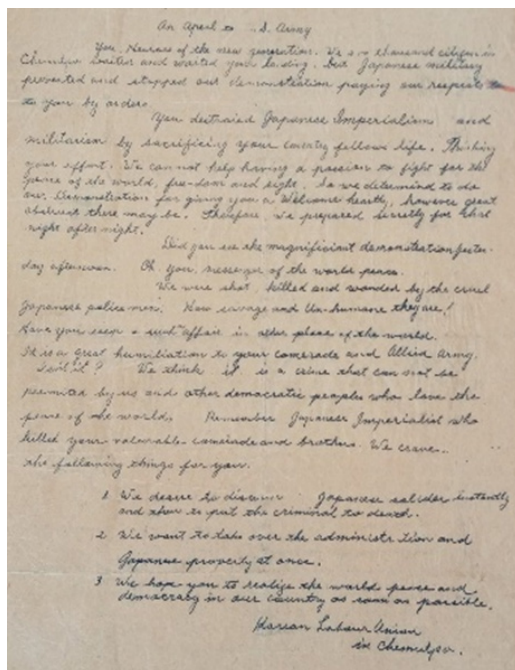 An Apeal to S. Army
You, Heroes of the new generation. We s n thousand citizen in
Chemulpo waiter and wanted your landing, but Japanese military
prevented and stopped our demonstration paying our respects to
to you by orders.
You destroied Japanese Imperialism and
militarism by sacrificing your country fellows life. Thinking
your effort. We can not help having a passion to fight for the
peace of the world, freedom and right. So we determind to do
our Demonstration for giving you a Welcome heartly, however great
there may be. Therefore, we prepared secretly for that
night after night.
Did you see the magnificient demonstration yester-
day afternoon. Oh, you, messenger of the world peace.
We were shot, killed and wonded by the cruel
Japanese police men. How savage and Un-humane they are!
Have you seen a such affair in other place of the world.
It is a great humiliation to your comerade and Allied Army.
Isn't it? We think it is a crime that can not be
permited by us and other democratic peoples who love the
peace of the world. Remember Japanese Imperialist who
killed your valuerable comerade and brothers. We crave
the following things for you.
1. We desire to disarm Japanese soldier instantly
and then to put the criminal to death.
2. We want to take over the administr tion and
Japanese at once.
3. We hope you to realize the world peace and
democracy in our country as soon as possible.
Korean Labour Union
in Chemulpo.